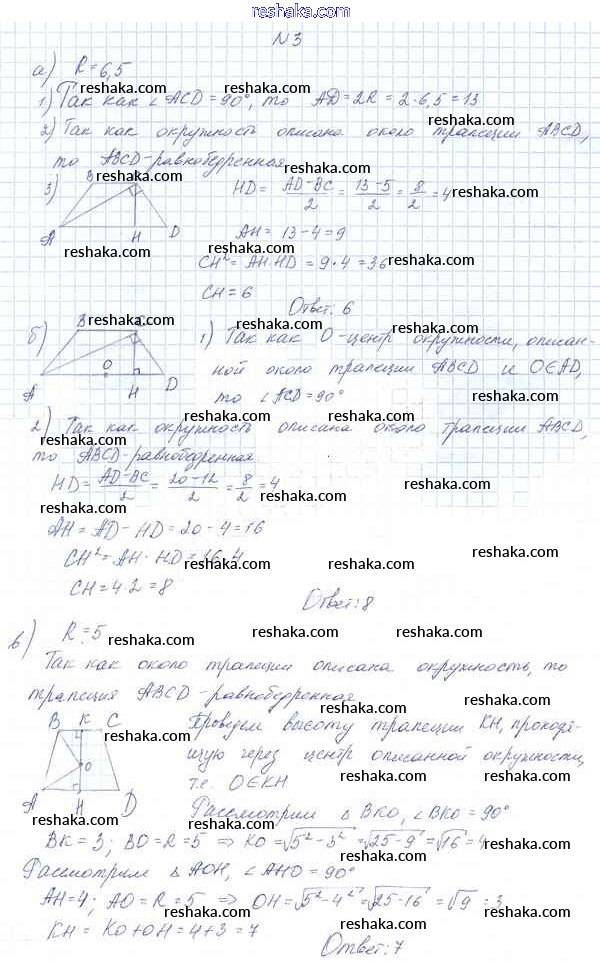 www.reshaka.com
N 3
а) R = 6,5
reshaka.com
1) Так как ∠ ACD = 90°, то AD = 2R = 2 · 6,5 = 13
reshaka.com reshaka.com
2) Так как окружность описана около трапеции ABCD,
reshaka.com reshaka.com
то ABCD - равнобедренная
reshaka.com
3) B reshaka.com HD = AD - BC / 2 = 13 - 5 / 2 = 8 / 2 = 4 reshaka.com
A H D AH = 13 - 4 = 9
reshaka.com CH² = AH · HD = 9 · 4 = 36 reshaka.com
CH = 6 reshaka.com
Ответ: 6
б) B reshaka.com 1) Так как O - центр окружности, описан-
reshaka.com
A O H D ной около трапеции ABCD и O∈AD,
reshaka.com то ∠ ACD = 90° reshaka.com
2) Так как окружность описана около трапеции ABCD,
reshaka.com reshaka.com
то ABCD - равнобедренная
HD = AD - BC / 2 = 20 - 12 / 2 = 8 / 2 = 4 reshaka.com
reshaka.com
AH = AD - HD = 20 - 4 = 16
CH² = AH · HD = 16 · 4 reshaka.com
reshaka.com
CH = 4 · 2 = 8
reshaka.com Ответ: 8
в) R = 5 reshaka.com
reshaka.com
Так как около трапеции описана окружность, то
reshaka.com reshaka.com
трапеция ABCD - равнобедренная
B K C Проведем высоту трапеции KH, проходя-
reshaka.com reshaka.com
O щую через центр описанной окружности,
reshaka.com
A H D т.е. O∈KH
reshaka.com Рассмотрим △ BKO, ∠BKO = 90°
reshaka.com reshaka.com
BK = 3; BO = R = 5 ⇒ KO = √5² - 3² = √25 - 9 = √16 = 4
reshaka.com
Рассмотрим △ AOH, ∠ AHO = 90°
reshaka.com reshaka.com
AH = 4; AO = R = 5 ⇒ OH = √5² - 4² = √25 - 16 = √9 = 3
reshaka.com reshaka.com
KH = KO + OH = 4 + 3 = 7
reshaka.com Ответ: 7